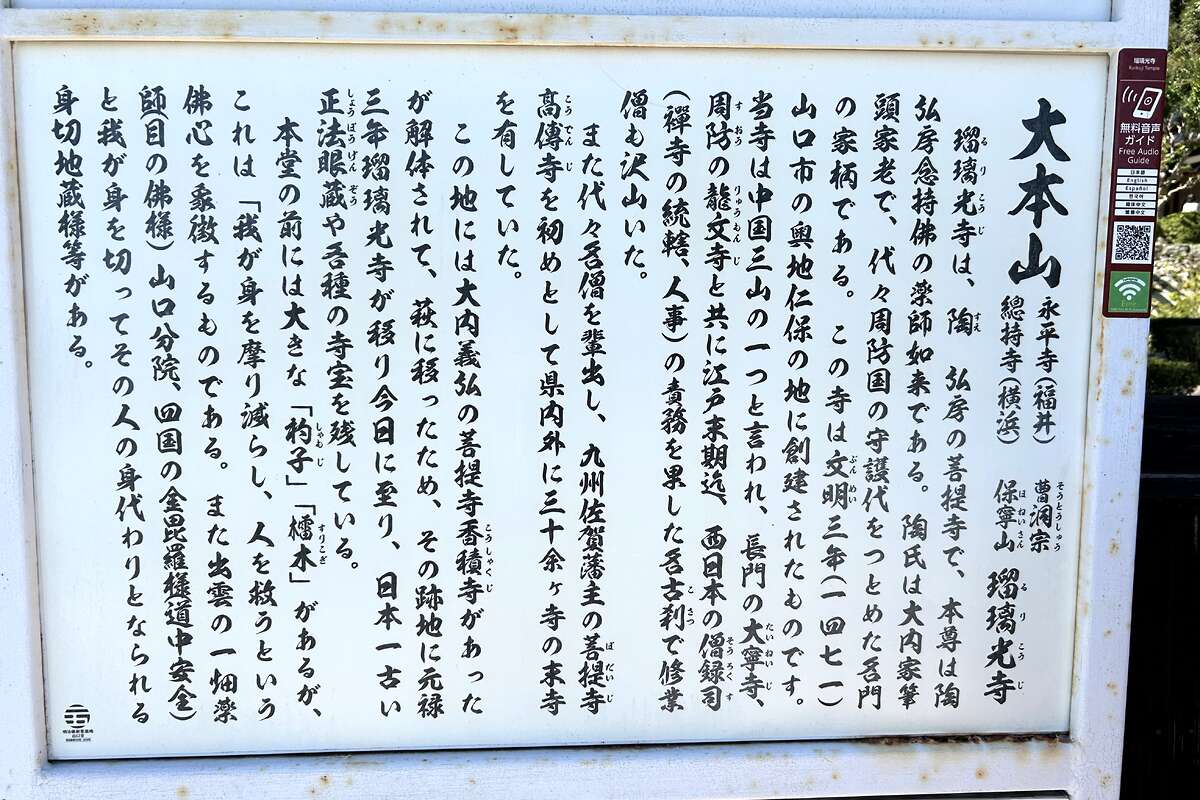 大本山
永平寺(福井)
總持寺(横浜)
そうとうしゅう
曹洞宗
ほねいさん
保寧山
るりこうじ
瑠璃光寺
るりこうじ すえ
瑠璃光寺は、陶 弘房の菩提寺で、本尊は陶
弘房念持佛の薬師如来である。陶氏は大内家筆
頭家老で、代々周防国の守護代をつとめた名門
ぶんめい
の家柄である。この寺は文明三年(一四七一)
山口市の奥地仁保の地に創建されたものです。
たいねいじ
当寺は中国三山の一つと言われ、長門の大寧寺、
すおう りゅうもんじ そうろくす
周防の龍文寺と共に江戸末期迄、西日本の僧録司
こさつ
(禪寺の統轄、人事)の責務を果した名古刹で修業
僧も沢山いた。
ぼだいじ
また代々名僧を輩出し、九州佐賀藩主の菩提寺
こうでんじ
高傳寺を初めとして県内外に三十余ヶ寺の末寺
を有していた。
こうしゃくじ
この地には大内義弘の菩提寺香積寺があった
が解体されて、萩に移ったため、その跡地に元禄
三年瑠璃光寺が移り今日に至り、日本一古い
しょうぼうげんぞう
正法眼蔵や各種の寺宝を残している。
しゃむじ すりこぎ
本堂の前には大きな「杓子」「櫺木」があるが、
これは「我が身を摩り減らし、人を救うという
佛心を象徴するものである。また出雲の一畑薬
師(目の佛様)山口分院、四国の金毘羅様道中安全)
と我が身を切ってその人の身代わりとなられる
身切地蔵様等がある。
瑠璃光寺
無料音声
ガイド
Free Audio
Guide
日本語
English
Español
한국어
简体中文
繁體中文